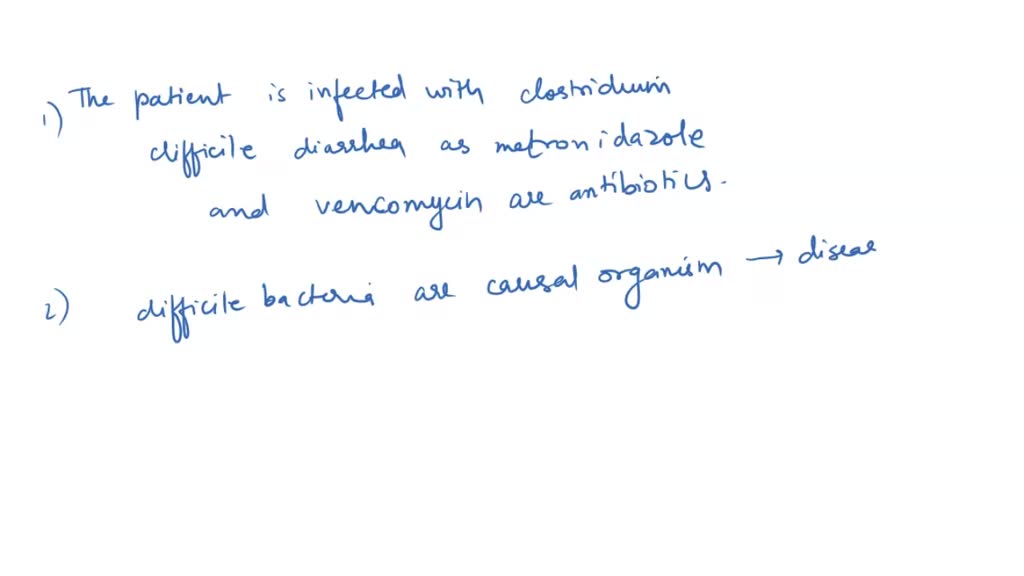 1) The patient is infected with clostridium
difficile diarrhea as metronidazole
and vencomycin are antibiotics.
2) difficile bacteria are causal organism → diseae